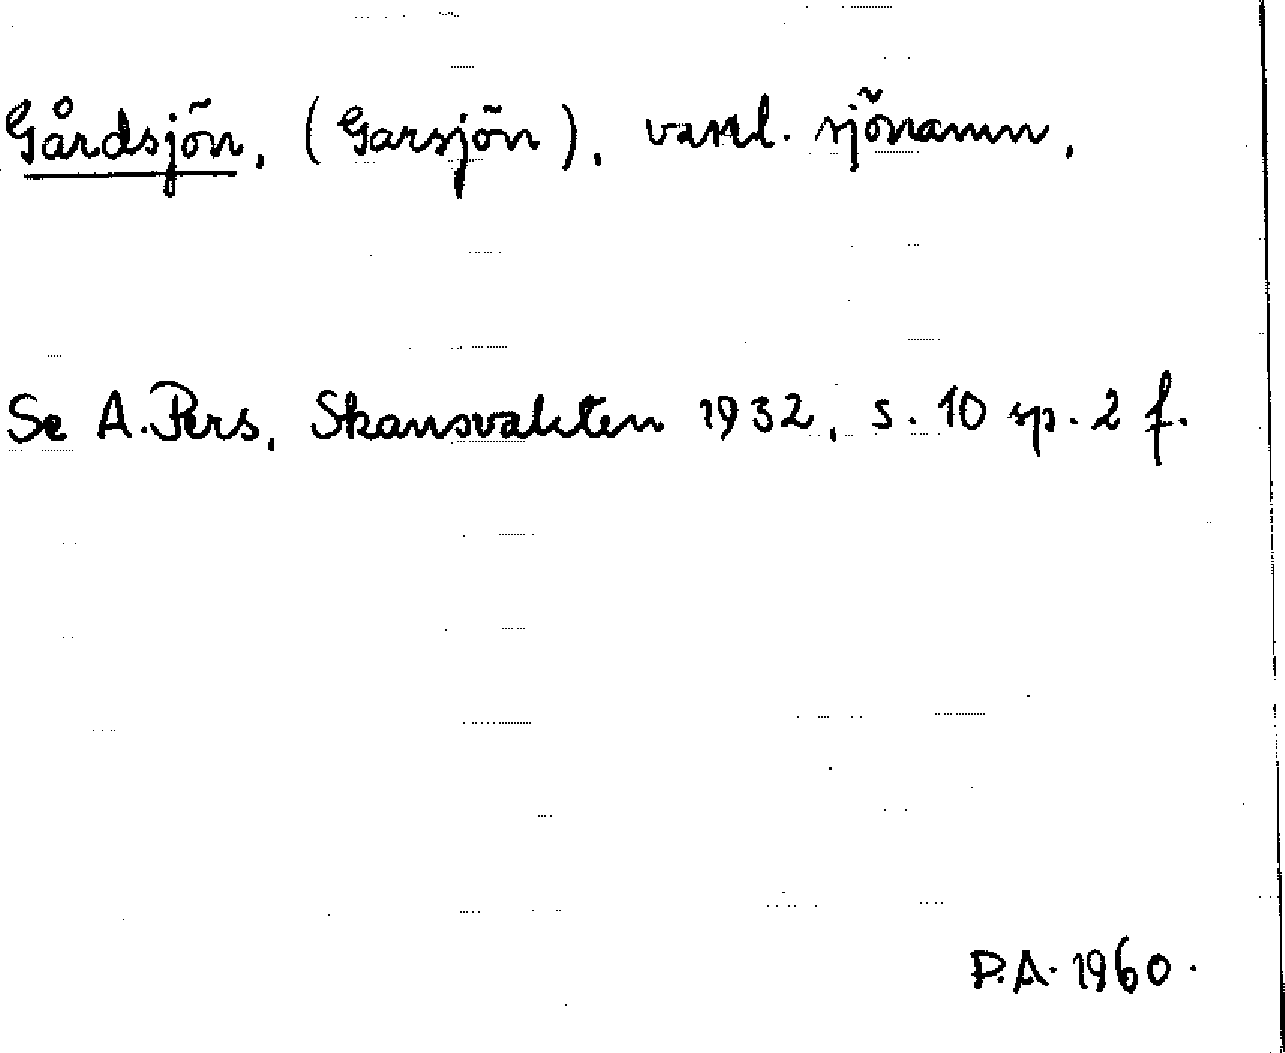 Gårdsjön, (Garsjön), vanl. sjönamn,
Se A. Pers, Skansvakten 1932, s. 10 sp. 2 f.
P.A. 1960.